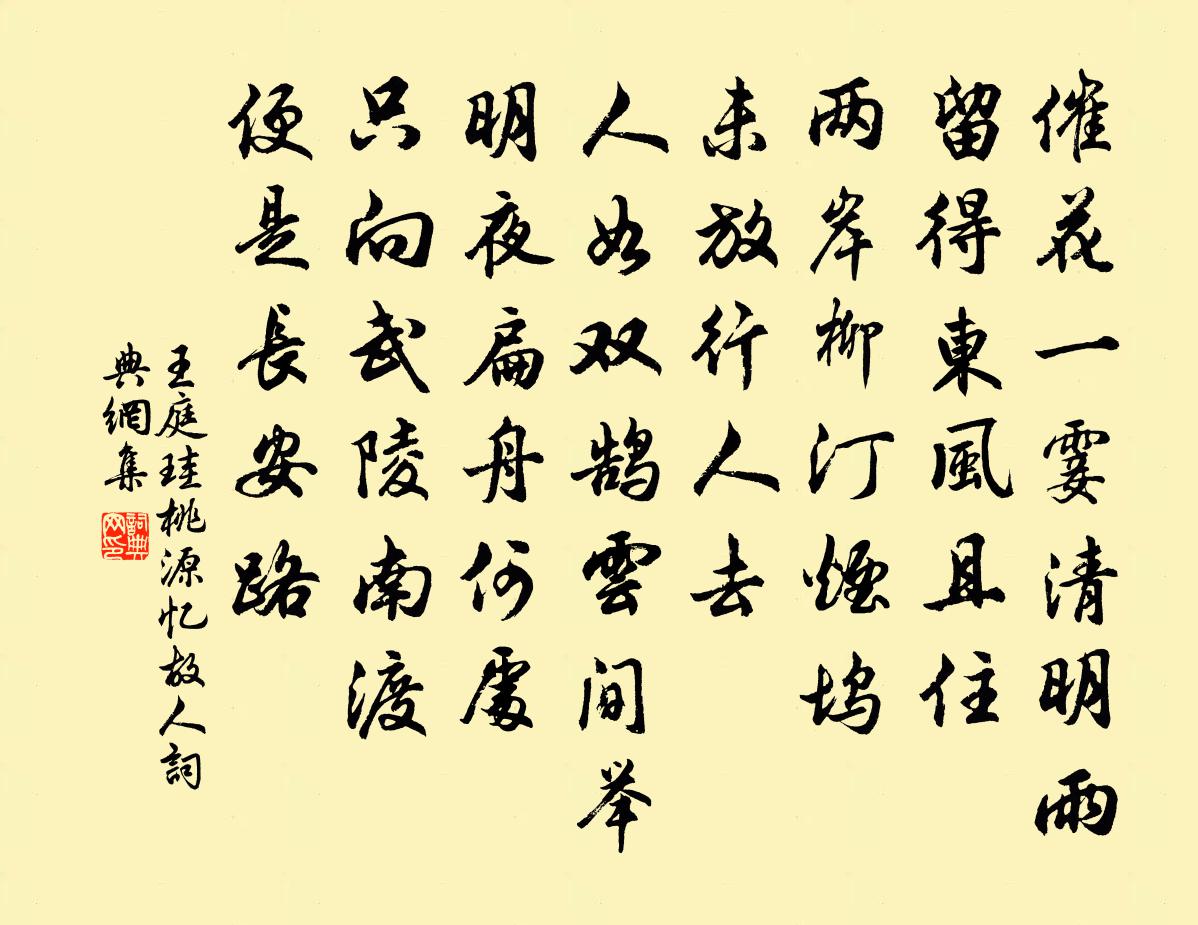 催花一霎清明雨
留得東風且住
两岸柳汀煙坞
未放行人去
人如双鹄雲间举
明夜扁舟何處
只向武陵南渡
便是長安路
王庭珪桃源忆故人詞
典網集
詞典網印